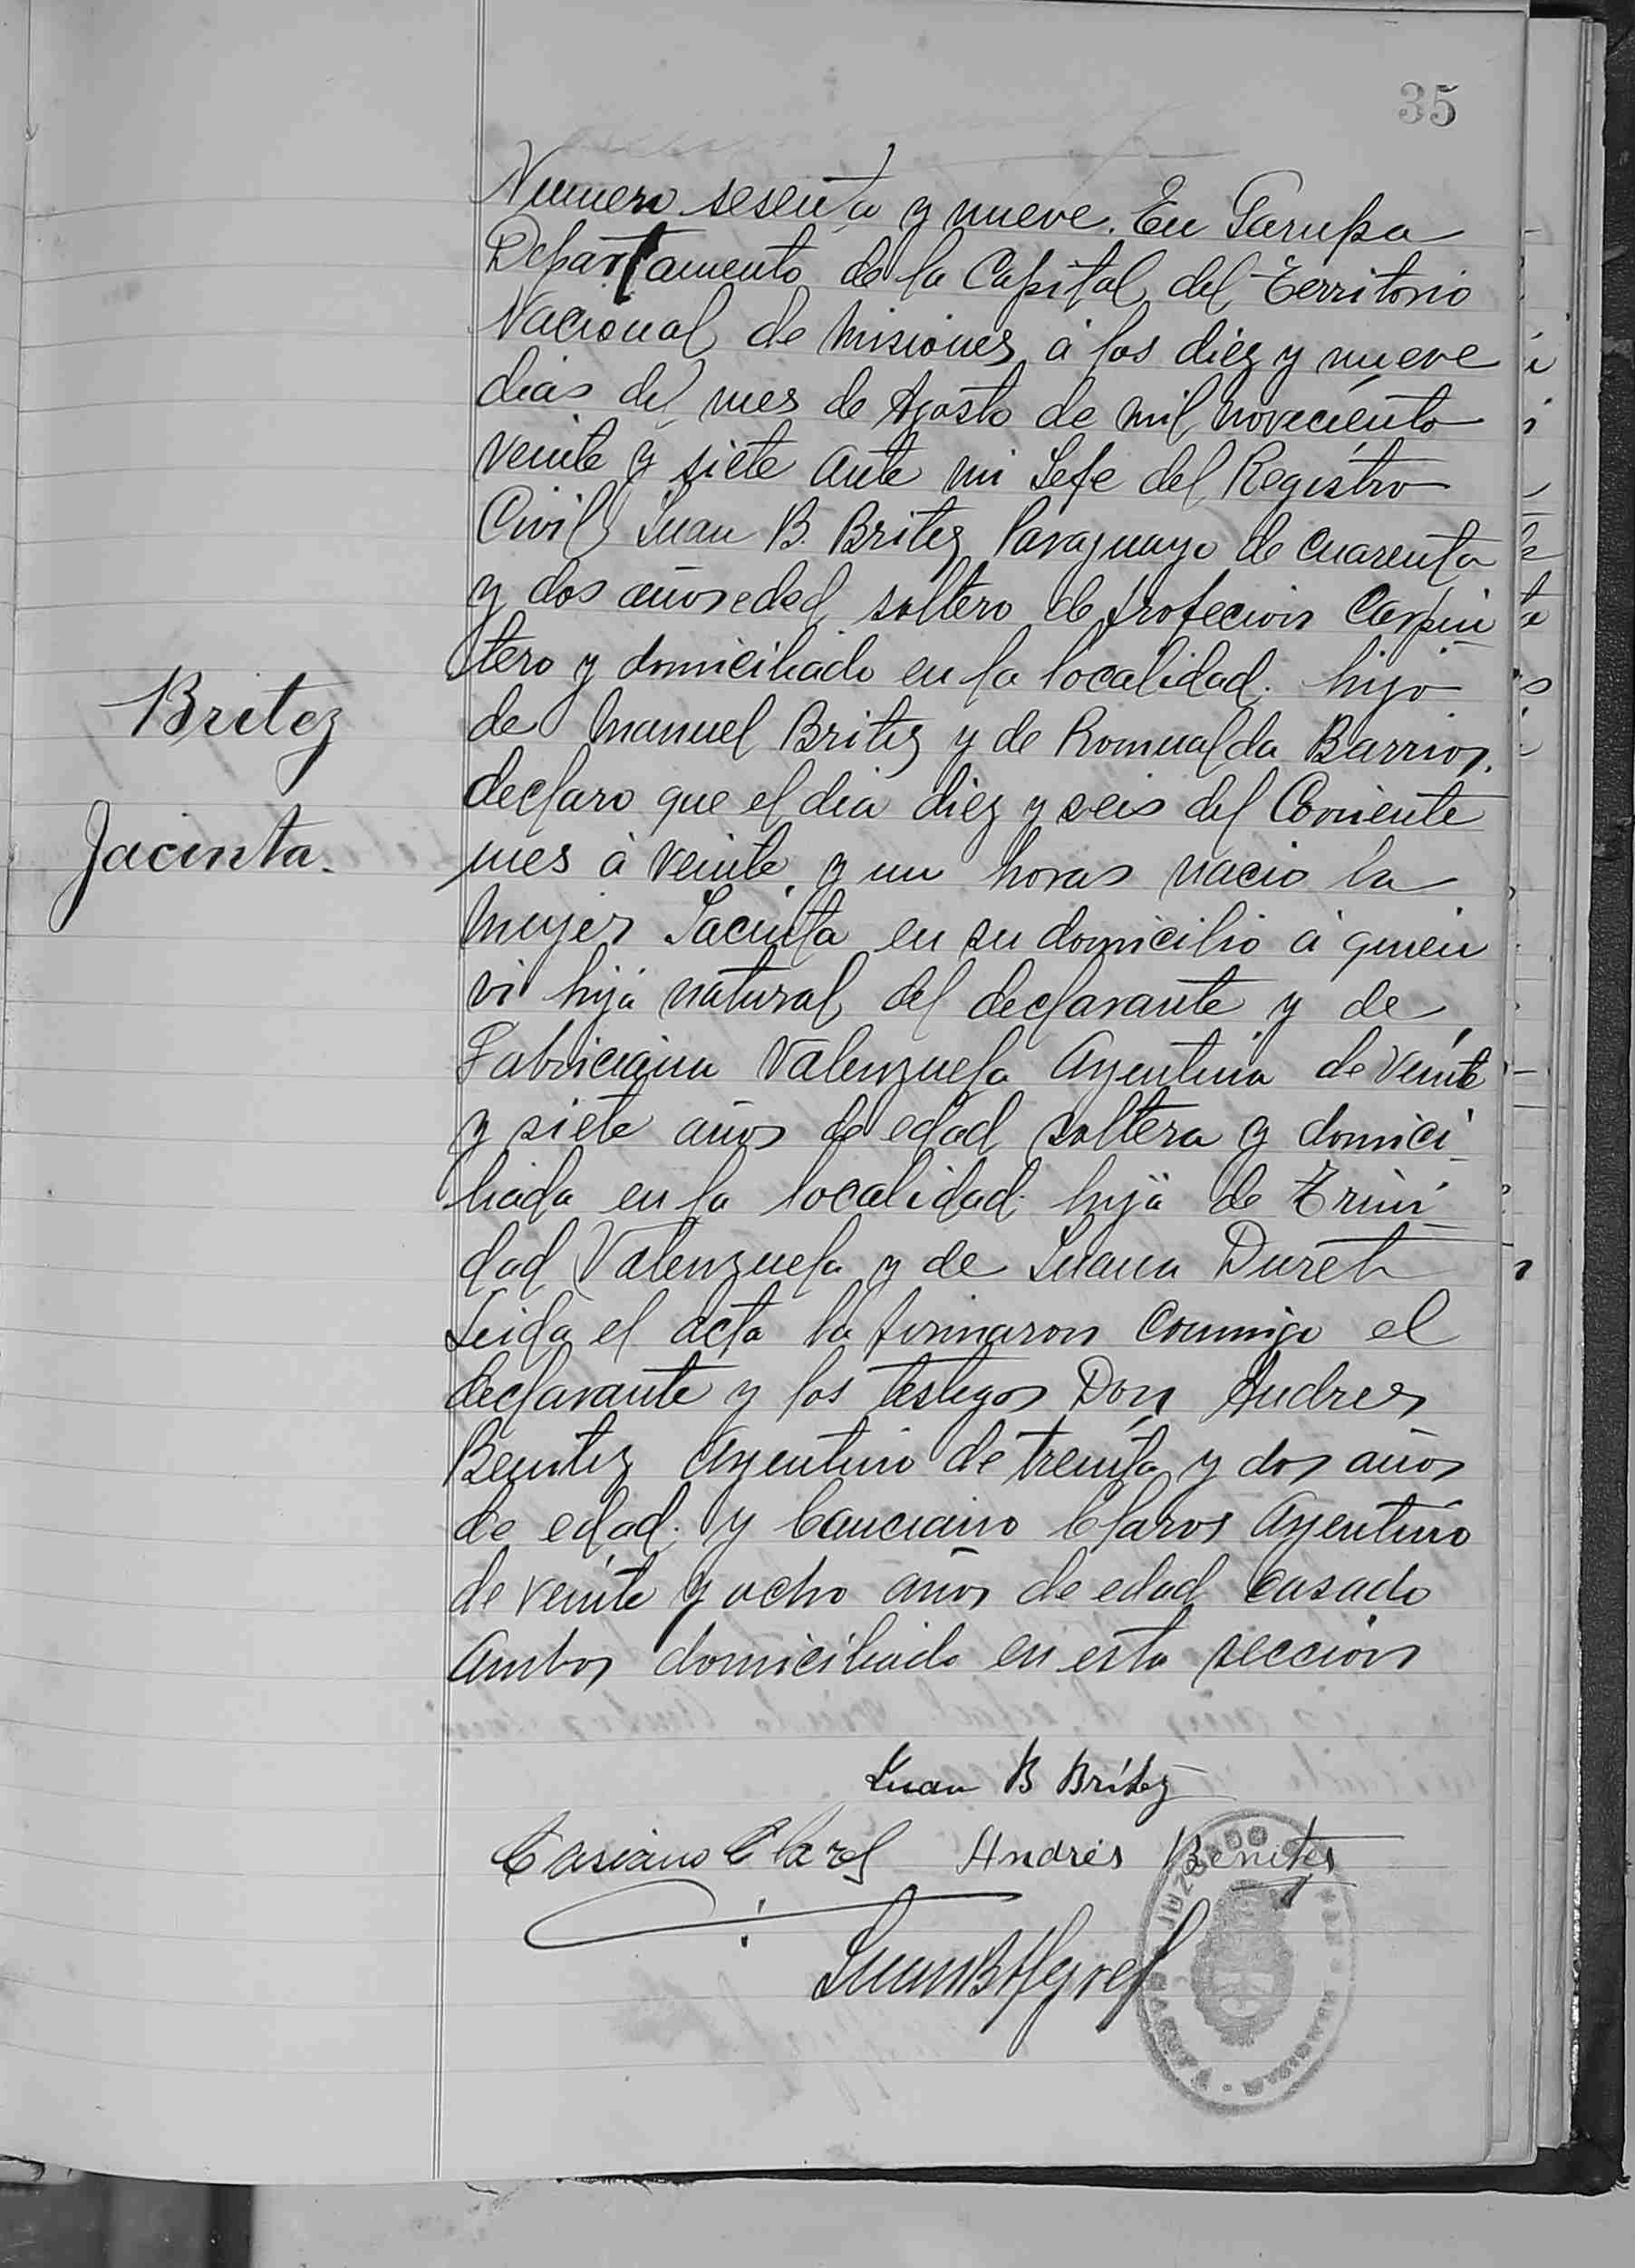 35
Numero sesenta y nueve. En Garupa
Departamento de la Capital del Territorio
Nacional de Misiones á los diez y nueve
dias del mes de Agosto de mil noveciento
veinte y siete ante mi Jefe del Registro
Civil Juan B. Britez Paraguayo de cuarenta
y dos años edad soltero de profecion Carpin
tero y domiciliado en la localidad. hijo
de Manuel Britez y de Romualda Barrios.
declaro que el dia diez y seis del Corriente
mes á veinte y un horas nacio la
mujer Jacinta en su domicilio á quien
vi hija natural del declarante y de
Fabriciana Valenzuela Argentina de veinte
y siete años de edad soltera y domici
liada en la localidad. hija de Trini
dad Valenzuela y de Juana Duret
Leida el acta la firmaron conmigo el
declarante y los testigos Don Andres
Benitez Argentino de treinta y dos años
de edad. y Canciano Claros Argentino
de veinte y ocho años de edad casado
Ambos domiciliado en esta seccion
Britez
Jacinta.
Juan B Britez
Casiano Andrés Benites
JUZGADO DE PAZ